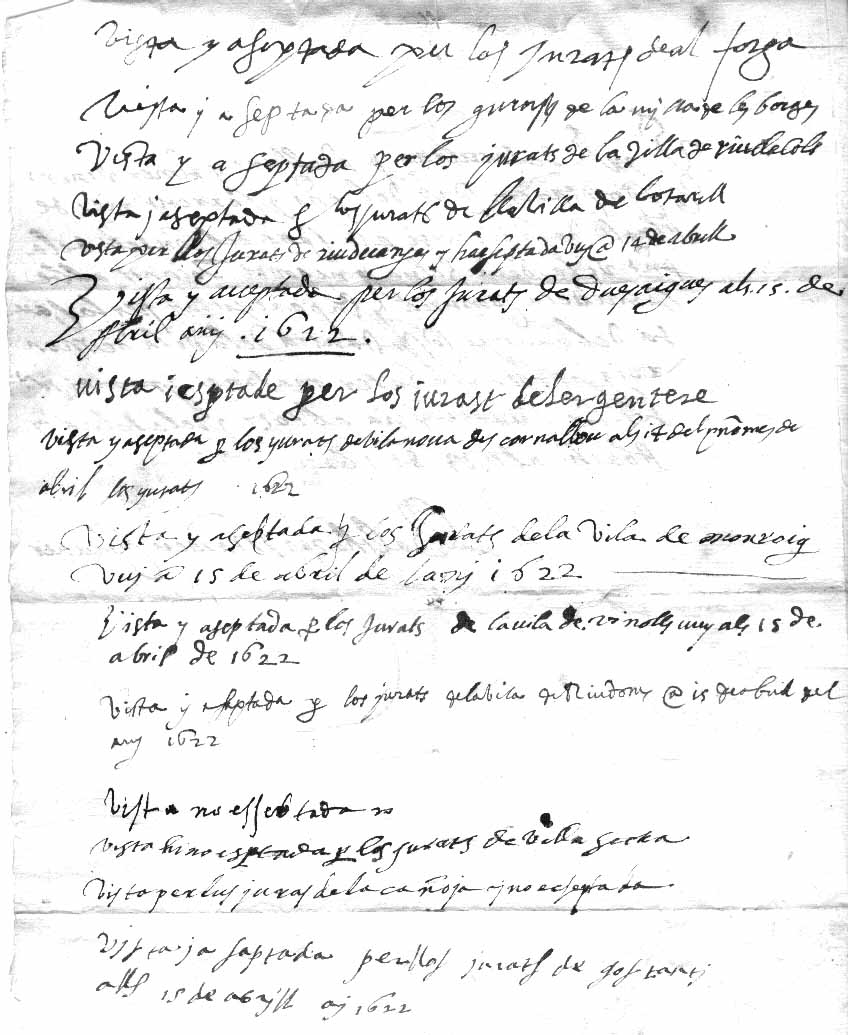 vista y aseptada per los Jurats de al forga
Vista y aseptada per los gurats de la villa de les borges
Vista y aseptada per los jurats de la Villa de riudecols
Vista j aseptada p los jurats de la Villa de botarell
vista per llos Jurats de riudecanyes y haseptada vuy @ 14 de abrill
Vista y acceptada per los Jurats de duesaigues als .15. de
Abril any .1622.
vista i esptade per los iurast delergentere
vista y aseptada p los yurats de vilanova des cornallbou als 14 del mes de
abril los yurats 1622
Vista y aseptada p los Jurats dela Vila de monroig
Vuy a 15 de abril de lany 1622
Vista y aseptada p los Jurats de la vila de. vinolls vuy als 15 de.
abril de 1622
Vista y aseptada p los jurats dela vila de Riudoms @ 15 de abrill del
any 1622
Vista no esseptada
vista hi no esptada p los jurats de villa secka
Vista per lus juras de la canoja ij no eseptada
Vista ja saptada perllos jurats de
alls 15 de abrill aj 1622